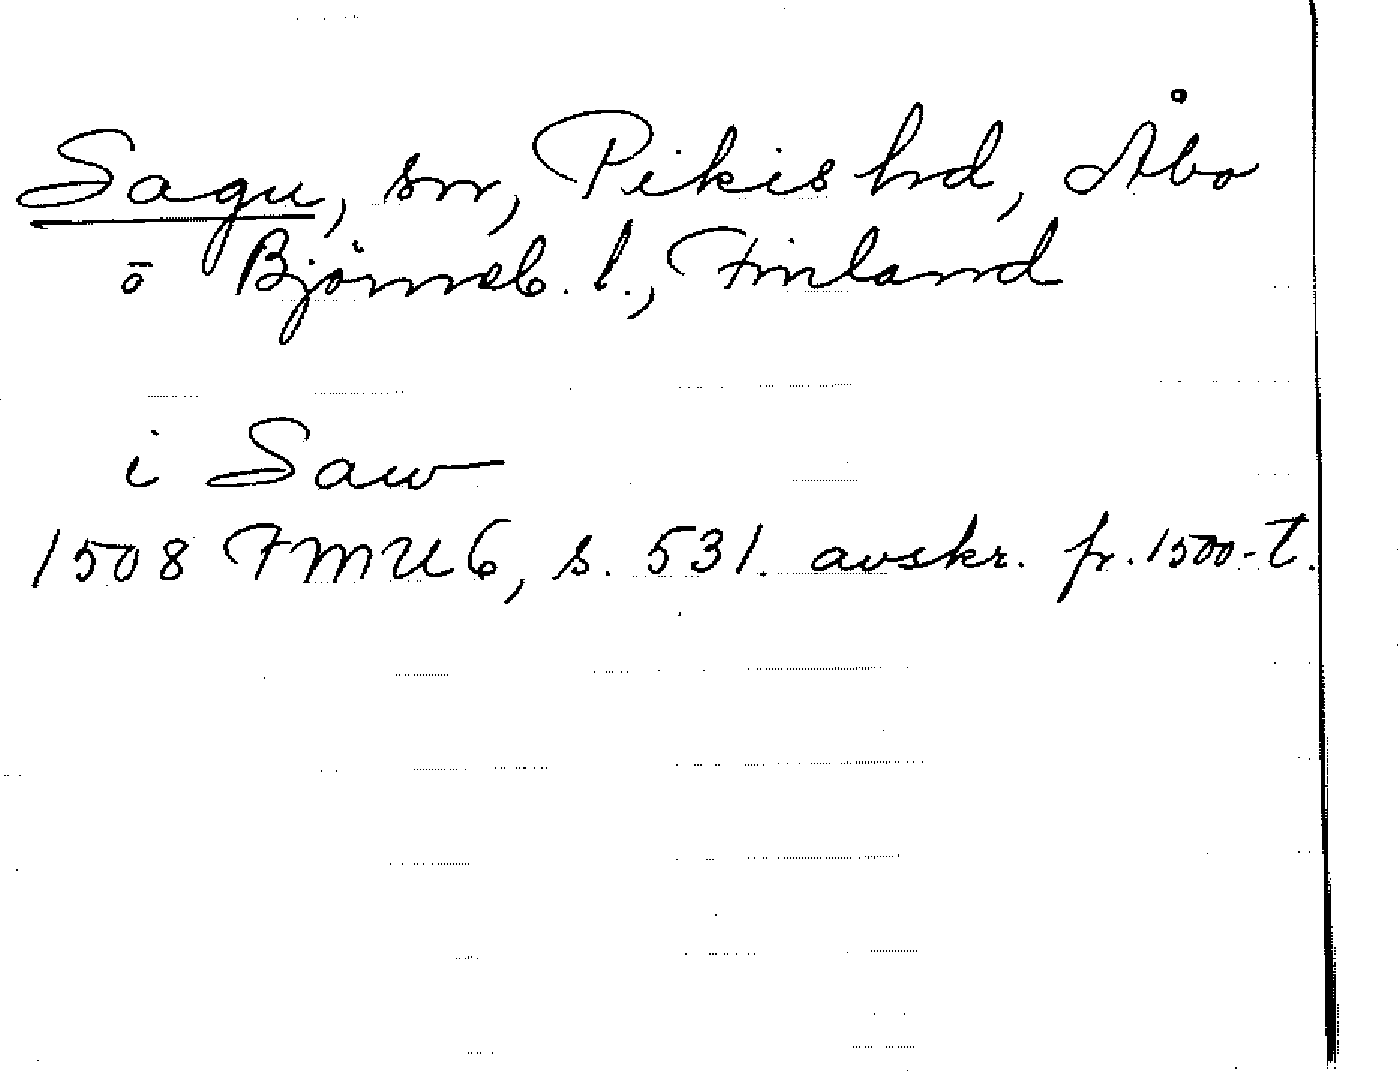 Sagu, sn, Pikis hd, Åbo
o Björneb. l., Finland
i Saw
1508 FMU 6, s. 531. avskr. fr. 1500-t.